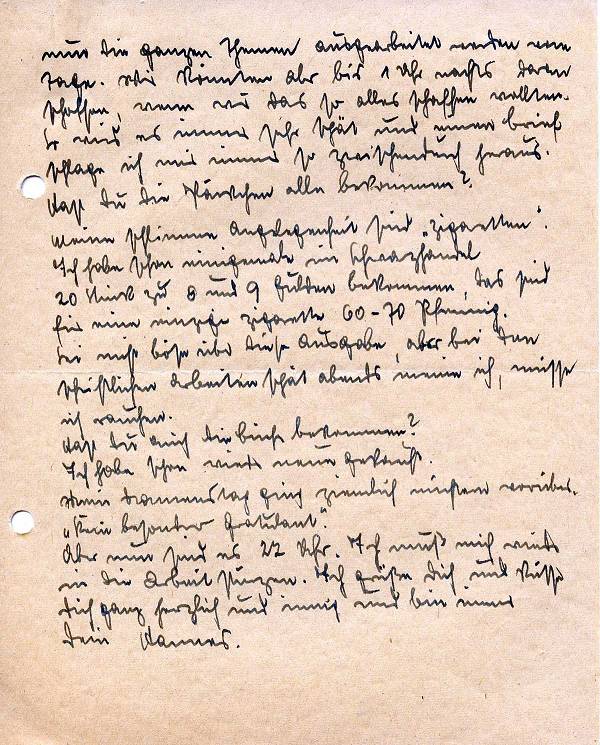 nun die ganzen Themen ausgearbeitet werden vom
Tage. Wir könnten aber bis 1 Uhr nachts daran
schaffen, wenn wir das so alles schaffen wollten.
So wird es immer sehr spät und einen Brief
schlage ich mir immer so zwischendurch heraus.
Hast Du die Päckchen alle bekommen?
Meine schlimme Angelegenheit sind „Zigaretten“.
Ich habe schon einigemale im Schwarzhandel
20 Stück zu 8 und 9 Gulden bekommen, das sind
für eine einzige Zigarette 60-70 Pfennig.
Sei nicht böse über diese Ausgabe, aber bei den
schriftlichen Arbeiten spät abends meine ich, müsse
ich rauchen.
Hast Du auch die Bücher bekommen?
Ich habe schon wieder neue gekauft.
Mein Namenstag ging ziemlich nüchtern vorüber.
„Kein besonderer Gratulant“.
Aber nun sind es 22 Uhr. Ich muß mich wieder
in die Arbeit stürzen. Ich grüße Dich und küsse
Dich ganz herzlich und innig und bin immer
Dein Hannes.